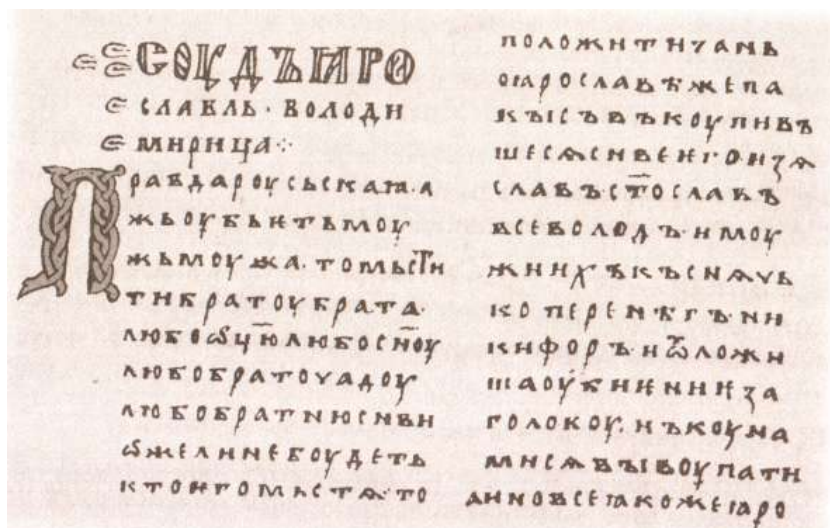 СѸДЪꙖРО
СЛАВЛЬ · ВОЛОДИ
МИРИЦА ⁘
Правдароусьскаꙗ · а
жьоубьѥтьмоу
жьмоужа · томьсти
тибратоубрата ·
любоѡц҃юлюбосн҃оу
любобратоуадоу
любобратнюсн҃ви
ѡжелинебоудеть
ктоѥгомьстѧ · то
положитиꙁань
оꙗрославѣжепа
кысъвъкоупивъ
шесѧсн҃веѥгоиꙁѧ
славъ · ст҃ославъ
всеволодъ · имоу
жиихъкъснѧчь
коперенѣгъни
кифоръиѿложи
шаоубиѥниѥꙁа
голоноу · нъкоуна
мисѧвыкоупати
аиновсеꙗкожеꙗро